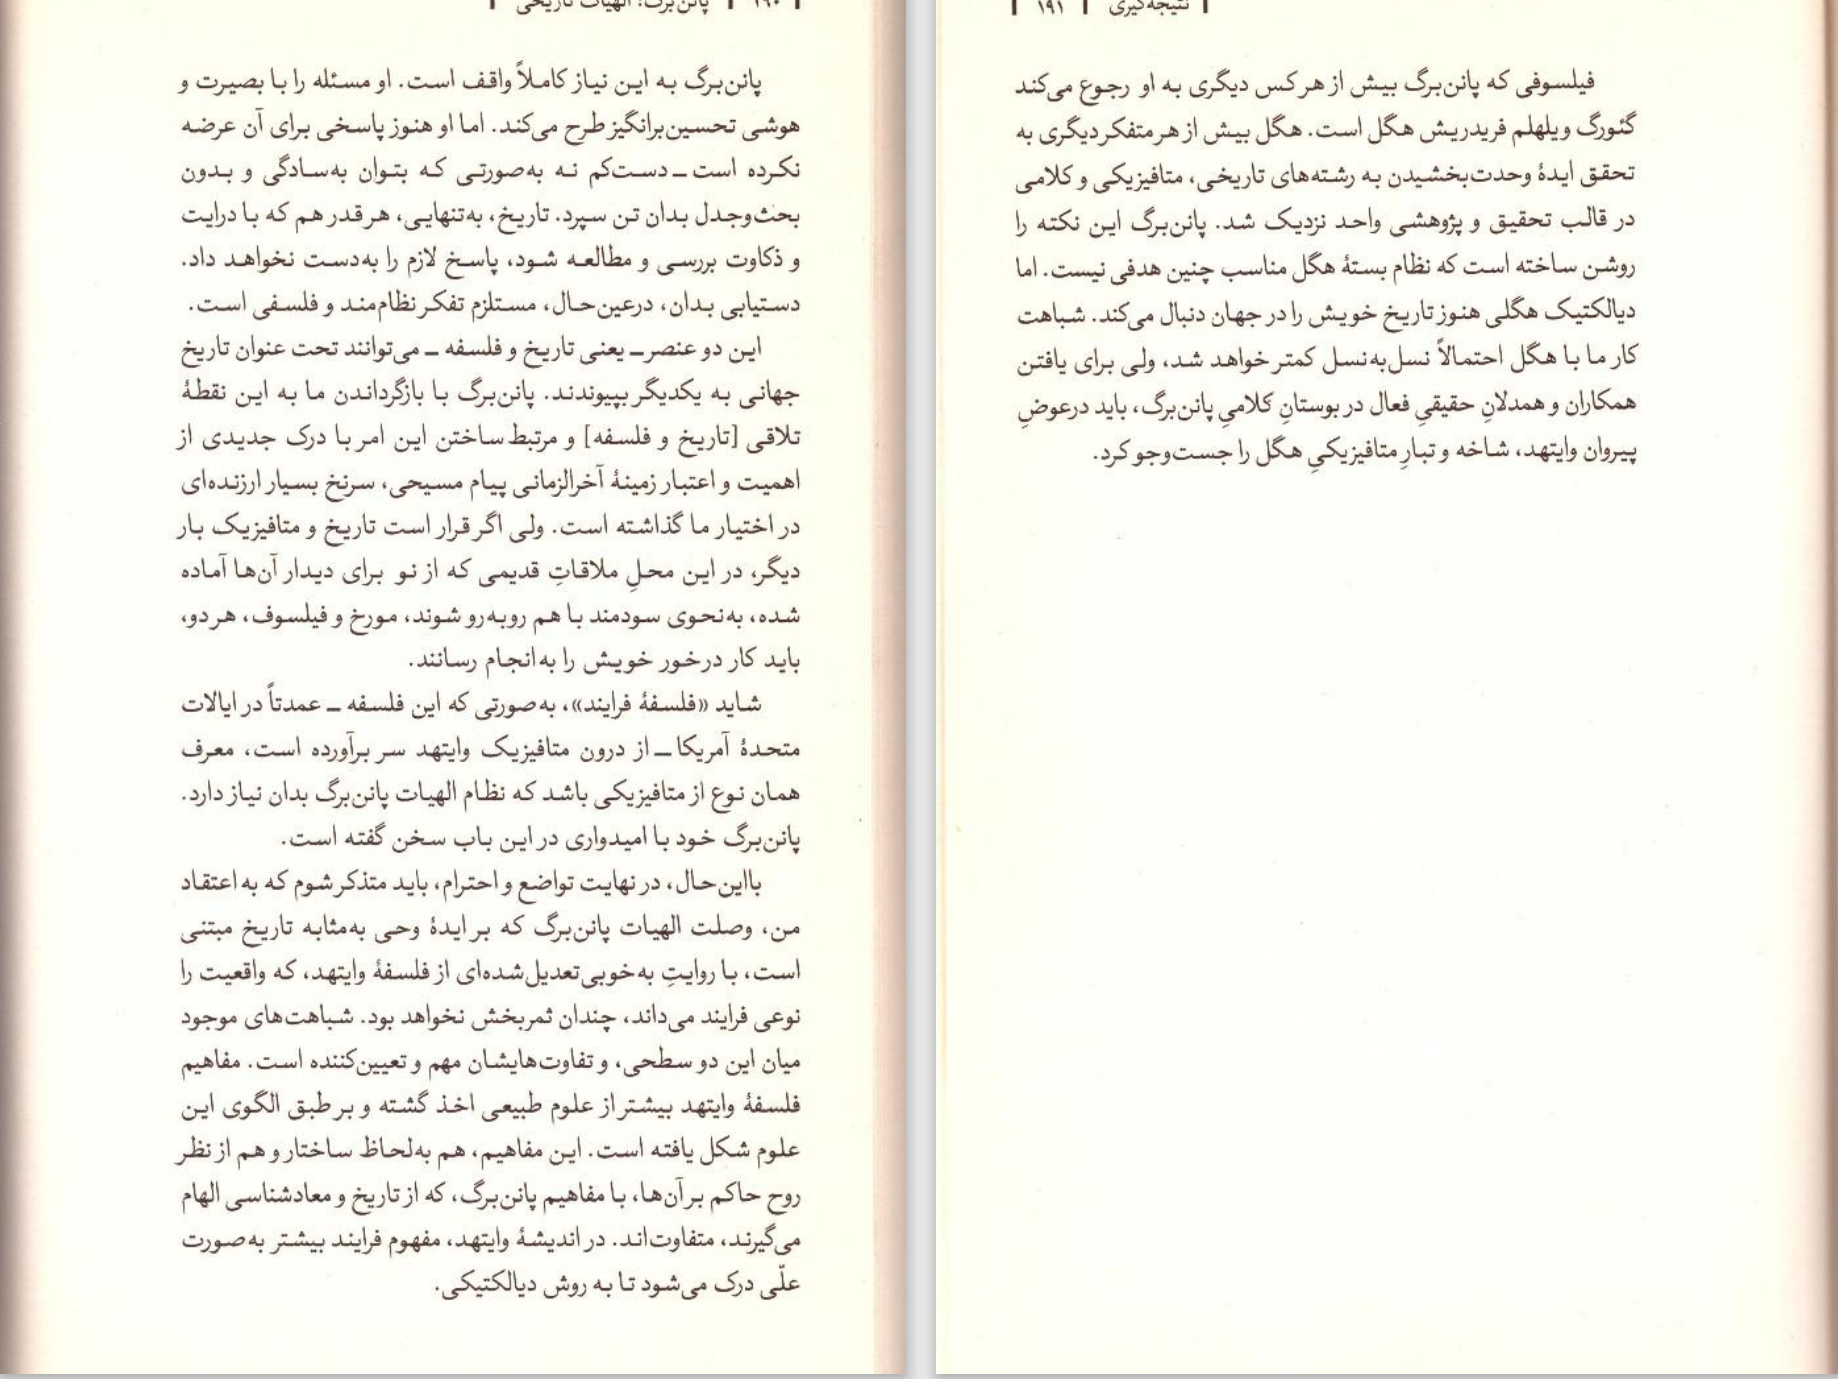 ۱۹۰ | پانن‌برگ: الهیات تاریخی
پانن‌برگ به این نیاز کاملاً واقف است. او مسئله را با بصیرت و
هوشی تحسین‌برانگیز طرح می‌کند. اما او هنوز پاسخی برای آن عرضه
نکرده است ــ دست‌کم نه به‌صورتی که بتوان به‌سادگی و بدون
بحث‌وجدل بدان تن سپرد. تاریخ، به‌تنهایی، هرقدر هم که با درایت
و ذکاوت بررسی و مطالعه شود، پاسخ لازم را به‌دست نخواهد داد.
دستیابی بدان، درعین‌حال، مستلزم تفکر نظام‌مند و فلسفی است.
این دو عنصر ــ یعنی تاریخ و فلسفه ــ می‌توانند تحت عنوان تاریخ
جهانی به یکدیگر بپیوندند. پانن‌برگ با بازگرداندن ما به این نقطۀ
تلاقی [تاریخ و فلسفه] و مرتبط ساختن این امر با درک جدیدی از
اهمیت و اعتبار زمینۀ آخرالزمانی پیام مسیحی، سرنخ بسیار ارزنده‌ای
در اختیار ما گذاشته است. ولی اگر قرار است تاریخ و متافیزیک بار
دیگر، در این محلِ ملاقاتِ قدیمی که از نو برای دیدار آن‌ها آماده
شده، به‌نحوی سودمند با هم روبه‌رو شوند، مورخ و فیلسوف، هر دو،
باید کار درخور خویش را به‌انجام رسانند.
شاید «فلسفۀ فرایند»، به‌صورتی که این فلسفه ــ عمدتاً در ایالات
متحدۀ آمریکا ــ از درون متافیزیک وایتهد سر برآورده است، معرف
همان نوع از متافیزیکی باشد که نظام الهیات پانن‌برگ بدان نیاز دارد.
پانن‌برگ خود با امیدواری در این باب سخن گفته است.
بااین‌حال، در نهایت تواضع و احترام، باید متذکر شوم که به اعتقاد
من، وصلت الهیات پانن‌برگ که بر ایدۀ وحی به‌مثابه تاریخ مبتنی
است، با روایتِ به‌خوبی‌تعدیل‌شده‌ای از فلسفۀ وایتهد، که واقعیت را
نوعی فرایند می‌داند، چندان ثمربخش نخواهد بود. شباهت‌های موجود
میان این دو سطحی، و تفاوت‌هایشان مهم و تعیین‌کننده است. مفاهیم
فلسفۀ وایتهد بیشتر از علوم طبیعی اخذ گشته و بر طبق الگوی این
علوم شکل یافته است. این مفاهیم، هم به‌لحاظ ساختار و هم از نظر
روح حاکم بر آن‌ها، با مفاهیم پانن‌برگ، که از تاریخ و معادشناسی الهام
می‌گیرند، متفاوت‌اند. در اندیشۀ وایتهد، مفهوم فرایند بیشتر به‌صورت
علّی درک می‌شود تا به روش دیالکتیکی.
نتیجه‌گیری | ۱۹۱
فیلسوفی که پانن‌برگ بیش از هرکس دیگری به او رجوع می‌کند
گئورگ ویلهلم فریدریش هگل است. هگل بیش از هر متفکر دیگری به
تحقق ایدۀ وحدت‌بخشیدن به رشته‌های تاریخی، متافیزیکی و کلامی
در قالب تحقیق و پژوهشی واحد نزدیک شد. پانن‌برگ این نکته را
روشن ساخته است که نظام بستۀ هگل مناسب چنین هدفی نیست. اما
دیالکتیک هگلی هنوز تاریخ خویش را در جهان دنبال می‌کند. شباهت
کار ما با هگل احتمالاً نسل‌به‌نسل کمتر خواهد شد، ولی برای یافتن
همکاران و همدلانِ حقیقیِ فعال در بوستانِ کلامیِ پانن‌برگ، باید درعوضِ
پیروان وایتهد، شاخه و تبارِ متافیزیکیِ هگل را جست‌وجو کرد.